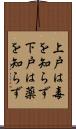 上戸は毒
を知らず
下戸は薬
を知らず